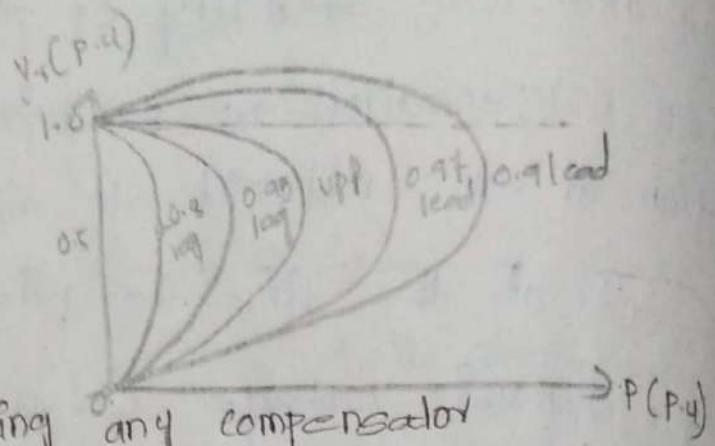 Vr(P.u)
1.0
0.5
0.8 lag
0.95 lag
upf
0.97 lead
0.9 lead
0
P(P.u)
ing any compensator